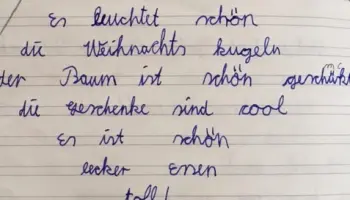 Es leuchtet schön
die Weihnachts kugeln
der Baum ist schön
die geschenke sind cool
Es ist schön
lecker essen
toll!